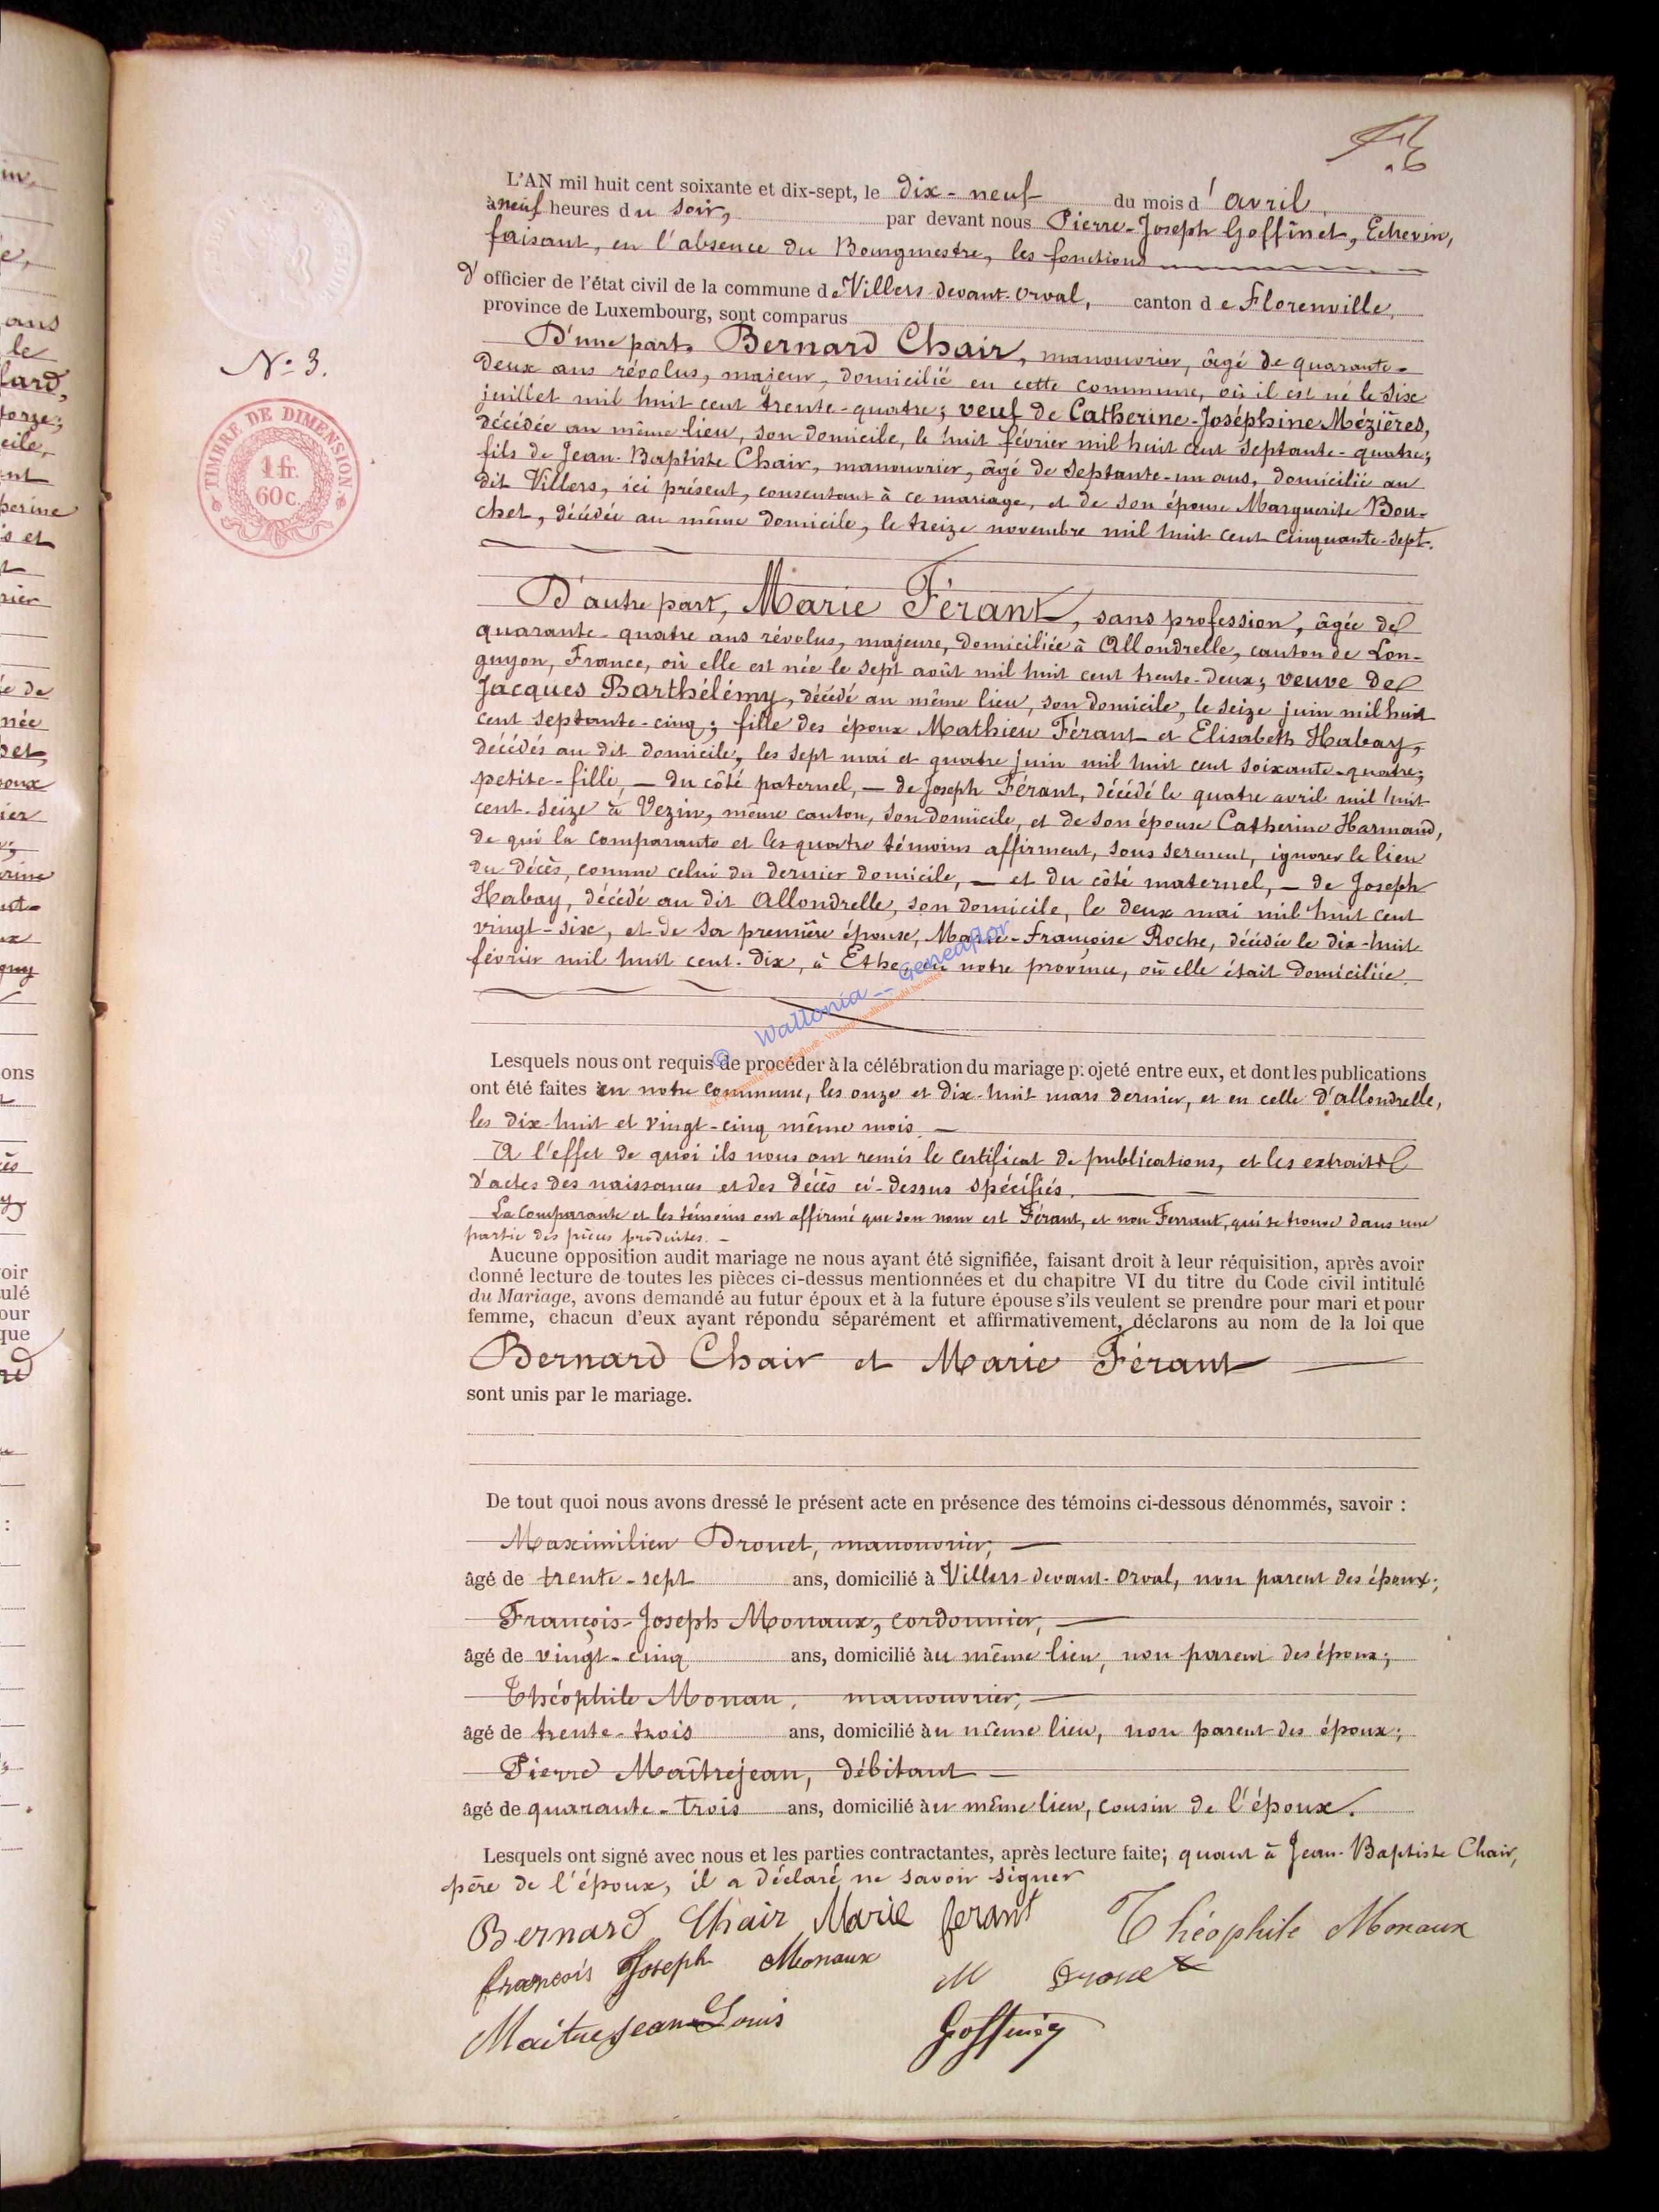 L'AN mil huit cent soixante et dix-sept, le dix-neuf du mois d'avril,
à neuf heures du soir, par devant nous Pierre-Joseph Goffinet, Echevin,
faisant, en l'absence du Bourgmestre, les fonctions
d'officier de l'état civil de la commune de Villers-devant-Orval, canton de Florenville,
province de Luxembourg, sont comparus
D'une part, Bernard Chair, manouvrier, âgé de quarante-
deux ans révolus, majeur, domicilié en cette commune, où il est né le six
juillet mil huit cent trente-quatre; veuf de Catherine-Joséphine Mézières,
décédée au même lieu, son domicile, le huit février mil huit cent septante-quatre;
fils de Jean-Baptiste Chair, manouvrier, âgé de septante-un ans, domicilié au
dit Villers, ici présent, consentant à ce mariage, et de son épouse Marguerite Bou-
chet, décédée au même domicile, le treize novembre mil huit cent cinquante-sept.
N° 3.
TIMBRE DE DIMENSION
1 fr.
60 c.
D'autre part, Marie Férant, sans profession, âgée de
quarante-quatre ans révolus, majeure, domiciliée à Allondrelle, canton de Lon-
guyon, France, où elle est née le sept août mil huit cent trente-deux; veuve de
Jacques Barthélémy, décédé au même lieu, son domicile, le seize juin mil huit
cent septante-cinq; fille des époux Mathieu Férant et Elisabeth Habay,
décédés au dit domicile, les sept mai et quatre juin mil huit cent soixante-quatre;
petite-fille, — du côté paternel, — de Joseph Férant, décédé le quatre avril mil huit
cent-seize à Vezin, même canton, son domicile, et de son épouse Catherine Harmand,
de qui la comparante et les quatre témoins affirment, sous serment, ignorer le lieu
du décès, comme celui du dernier domicile, — et du côté maternel, — de Joseph
Habay, décédé au dit Allondrelle, son domicile, le deux mai mil huit cent
vingt-six, et de sa première épouse, Marie-Françoise Roche, décédée le dix-huit
février mil huit cent-dix, à Ethe, en notre province, où elle était domiciliée.
© Wallonia -- Geneaflor
Lesquels nous ont requis de procéder à la célébration du mariage projeté entre eux, et dont les publications
ont été faites en notre commune, les onze et dix-huit mars dernier, et en celle d'allondrelle,
les dix-huit et vingt-cinq même mois. —
A l'effet de quoi ils nous ont remis le certificat de publications, et les extraits
d'actes des naissances et des décès ci-dessus spécifiés.
La comparante et les témoins ont affirmé que son nom est Férant, et non Ferrant, qui se trouve dans une
partie des pièces produites. —
Aucune opposition audit mariage ne nous ayant été signifiée, faisant droit à leur réquisition, après avoir
donné lecture de toutes les pièces ci-dessus mentionnées et du chapitre VI du titre du Code civil intitulé
du Mariage, avons demandé au futur époux et à la future épouse s'ils veulent se prendre pour mari et pour
femme, chacun d'eux ayant répondu séparément et affirmativement, déclarons au nom de la loi que
Bernard Chair et Marie Férant
sont unis par le mariage.
De tout quoi nous avons dressé le présent acte en présence des témoins ci-dessous dénommés, savoir :
Maximilien Drouet, manouvrier, —
âgé de trente-sept ans, domicilié à Villers-devant-Orval, non parent des époux;
François-Joseph Monaux, cordonnier, —
âgé de vingt-cinq ans, domicilié au même lieu, non parent des époux;
Théophile Monau, manouvrier, —
âgé de trente-trois ans, domicilié au même lieu, non parent des époux;
Pierre Maîtrejean, débitant —
âgé de quarante-trois ans, domicilié au même lieu, cousin de l'époux.
Lesquels ont signé avec nous et les parties contractantes, après lecture faite; quant à Jean-Baptiste Chair,
père de l'époux, il a déclaré ne savoir signer
Bernard Chair Marie ferant Théophile Monaux
françois Joseph Monaux M Drouet
Maitrejean Louis Goffinet